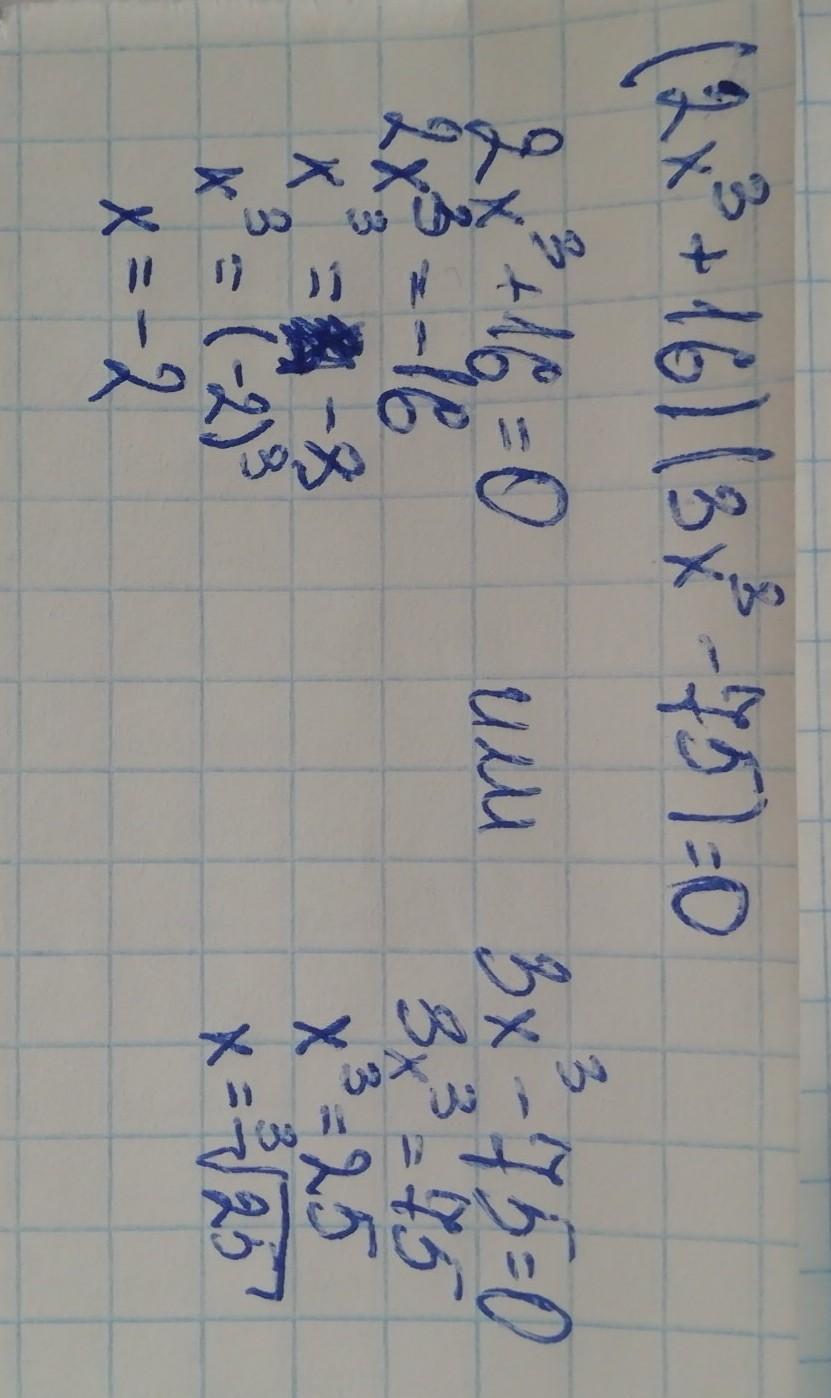 (2x³+16)(3x³-75)=0
2x³+16=0 или 3x³-75=0
2x³=-16 3x³=75
x³=-8 x³=25
x³=(-2)³ x=³√25
x=-2